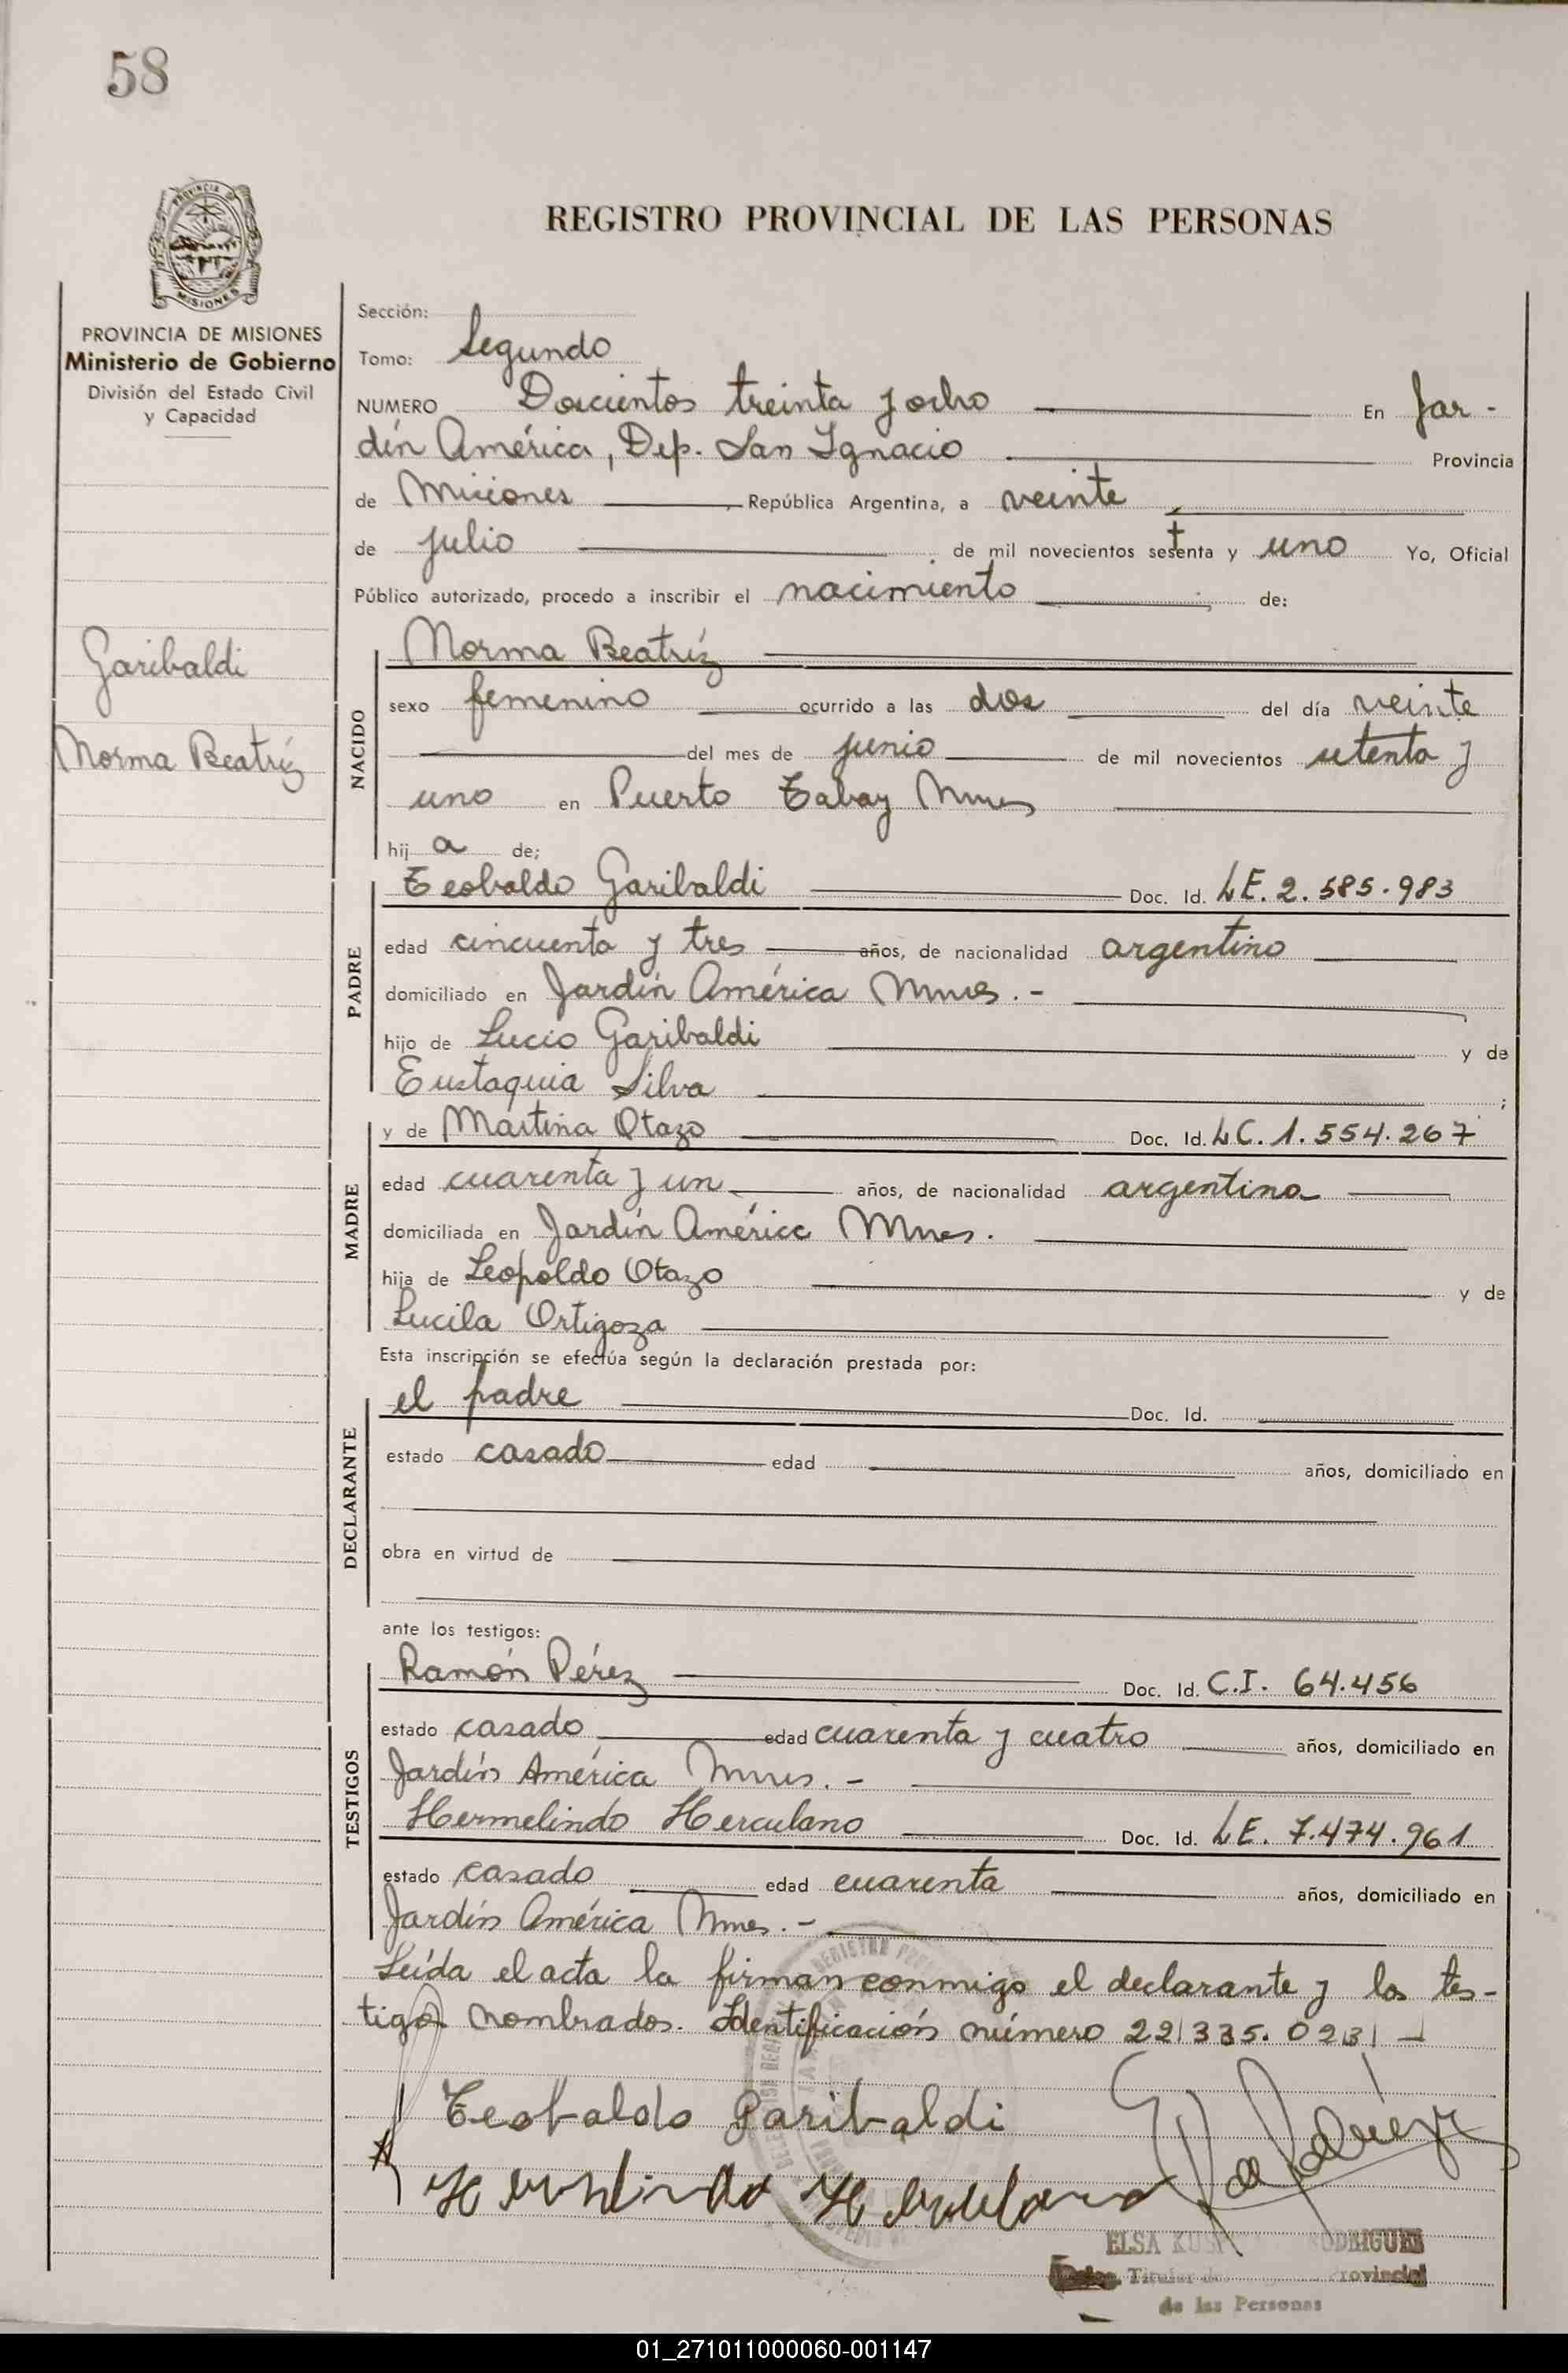 58
PROVINCIA DE MISIONES
REGISTRO PROVINCIAL DE LAS PERSONAS
PROVINCIA DE MISIONES
Ministerio de Gobierno
División del Estado Civil
y Capacidad
Garibaldi
Norma Beatríz
Sección:
Tomo: Segundo
NUMERO Doscientos treinta y ocho En Jar-
dín América, Dep. San Ignacio Provincia
de Misiones República Argentina, a veinte
de julio de mil novecientos setenta y uno Yo, Oficial
Público autorizado, procedo a inscribir el nacimiento de:
NACIDO
Norma Beatríz
sexo femenino ocurrido a las dos del día veinte
del mes de junio de mil novecientos setenta y
uno en Puerto Tabay Mnes
hij a de;
PADRE
Teobaldo Garibaldi Doc. Id. LE. 2.585.983
edad cincuenta y tres años, de nacionalidad argentino
domiciliado en Jardín América Mnes.-
hijo de Lucio Garibaldi y de
Eustaquia Silva ;
MADRE
y de Martina Otazo Doc. Id. LC. 1.554.267
edad cuarenta y un años, de nacionalidad argentina
domiciliada en Jardín América Mnes.
hija de Leopoldo Otazo y de
Lucila Ortigoza
Esta inscripción se efectúa según la declaración prestada por:
DECLARANTE
el padre Doc. Id.
estado casado edad años, domiciliado en
obra en virtud de
ante los testigos:
TESTIGOS
Ramón Pérez Doc. Id. C.I. 64.456
estado casado edad cuarenta y cuatro años, domiciliado en
Jardín América Mnes.-
Hermelindo Herculano Doc. Id. LE. 7.474.961
estado casado edad cuarenta años, domiciliado en
Jardín América Mnes.-
Leída el acta la firman conmigo el declarante y los tes-
tigos nombrados. Identificación número 22.335.023
Teobaldo Garibaldi
Hermelindo Herculano
ELSA RODRIGUEZ
Deleg. Titular Provincial
de las Personas
01_271011000060-001147